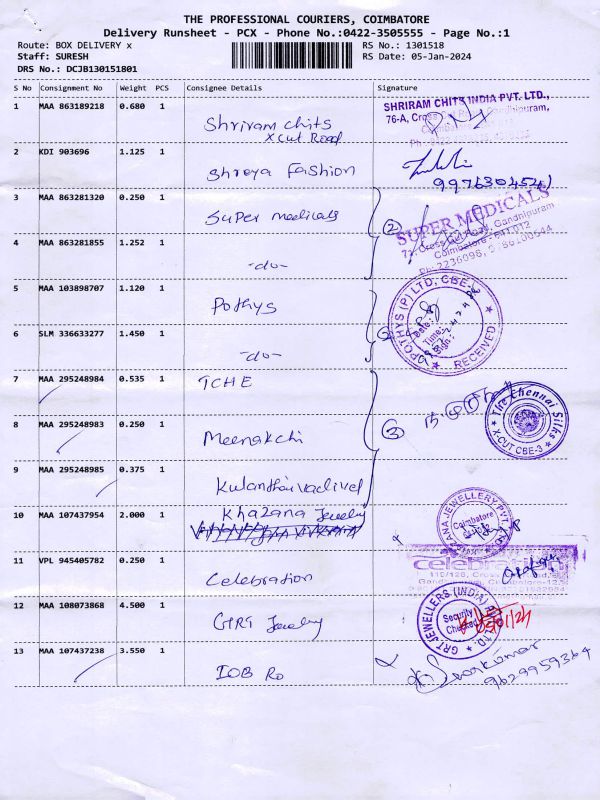 THE PROFESSIONAL COURIERS, COIMBATORE
Delivery Runsheet - PCX - Phone No.:0422-3505555 - Page No.:1
Route: BOX DELIVERY x RS No.: 1301518
Staff: SURESH RS Date: 05-Jan-2024
DRS No.: DCJB130151801
S No Consignment No Weight PCS Consignee Details Signature
1 MAA 863189218 0.680 1 Shriram chits
x cut Road
SHRIRAM CHITS INDIA PVT. LTD.,
76-A, Cross
2 KDI 903696 1.125 1 Shreya Fashion
3 MAA 863281320 0.250 1 Super medicals
②
SUPER MEDICALS
Cross Cut Road, Gandhipuram
Coimbatore - 641 012
4 MAA 863281855 1.252 1 -do-
5 MAA 103898707 1.120 1 Pothys
POTHYS (P) LTD, CBE-
Date:
Time:
Sign:
RECEIVED
6 SLM 336633277 1.450 1 -do-
7 MAA 295248984 0.535 1 TCHE
8 MAA 295248983 0.250 1 Meenakchi
③
The Chennai Silks
X-CUT CBE-3
9 MAA 295248985 0.375 1 Kulanthaivadivel
10 MAA 107437954 2.000 1 Khazana Jewelry
Coimbatore
11 VPL 945405782 0.250 1 Celebration
celebration
12 MAA 108073868 4.500 1 GRT Jewelry
GRT JEWELLERS (INDIA) PVT. LTD.
Security
Checked
13 MAA 107437238 3.550 1 IOB Ro
Sivakumar
9629959364